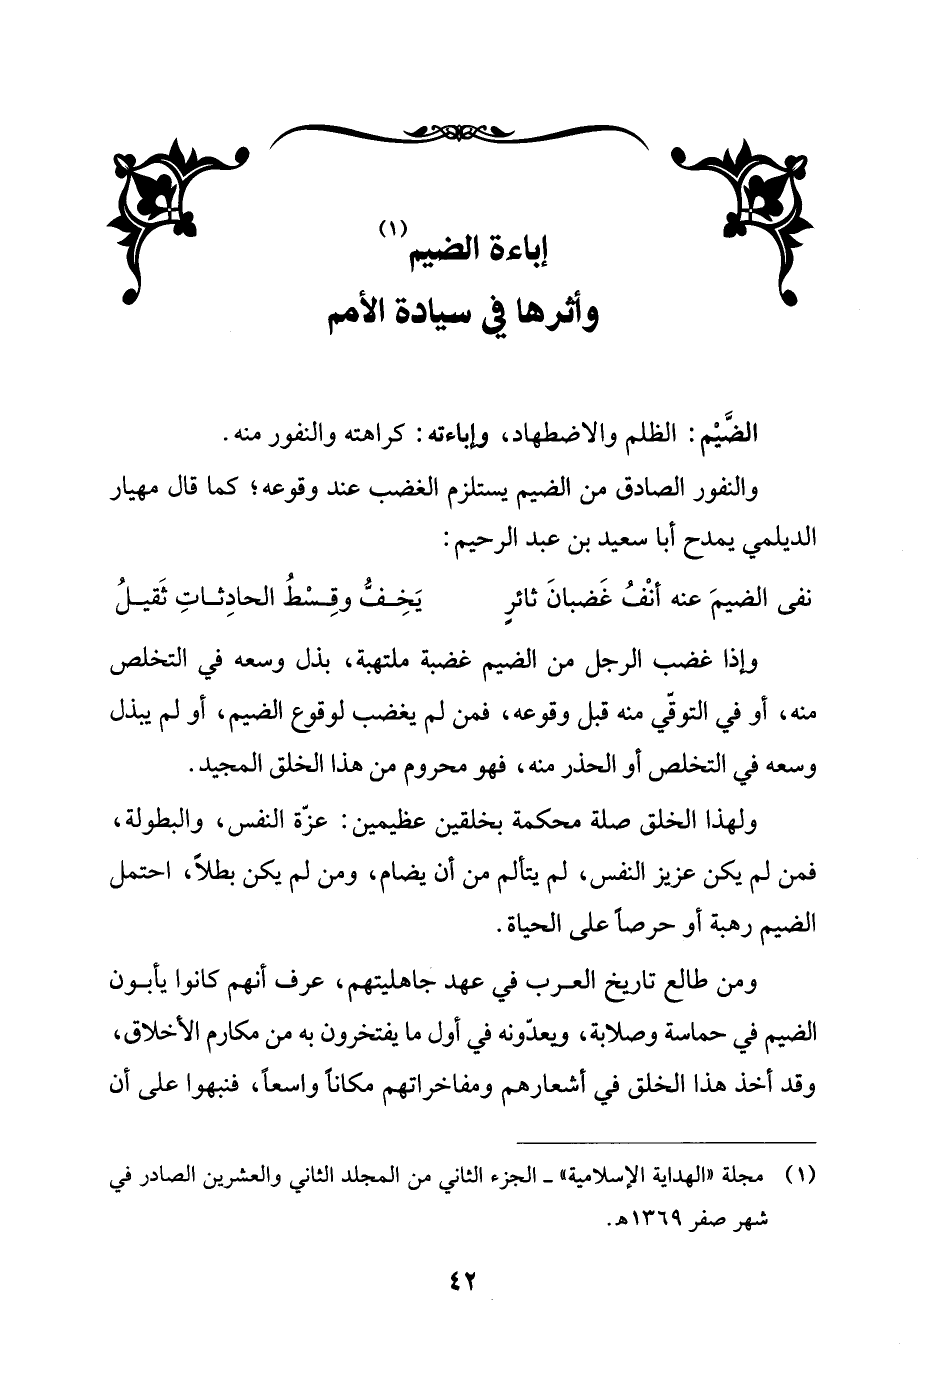 إباءة الضيم(١)
وأثرها في سيادة الأمم
الضَّيْم: الظلم والاضطهاد، وإباءته: كراهته والنفور منه.
والنفور الصادق من الضيم يستلزم الغضب عند وقوعه؛ كما قال مهيار
الديلمي يمدح أبا سعيد بن عبد الرحيم:
نفى الضيمَ عنه أنْفُ غَضبانَ ثائرٍ يَخِـفُّ وقِـسْطُ الحادِثـاتِ ثَقيـلُ
وإذا غضب الرجل من الضيم غضبة ملتهبة، بذل وسعه في التخلص
منه، أو في التوقّي منه قبل وقوعه، فمن لم يغضب لوقوع الضيم، أو لم يبذل
وسعه في التخلص أو الحذر منه، فهو محروم من هذا الخلق المجيد.
ولهذا الخلق صلة محكمة بخلقين عظيمين: عزّة النفس، والبطولة،
فمن لم يكن عزيز النفس، لم يتألم من أن يضام، ومن لم يكن بطلاً، احتمل
الضيم رهبة أو حرصاً على الحياة.
ومن طالع تاريخ العـرب في عهد جاهليتهم، عرف أنهم كانوا يأبـون
الضيم في حماسة وصلابة، ويعدّونه في أول ما يفتخرون به من مكارم الأخلاق،
وقد أخذ هذا الخلق في أشعارهم ومفاخراتهم مكاناً واسعاً، فنبهوا على أن
(١) مجلة «الهداية الإسلامية» ـ الجزء الثاني من المجلد الثاني والعشرين الصادر في
شهر صفر ١٣٦٩هـ.
٤٢